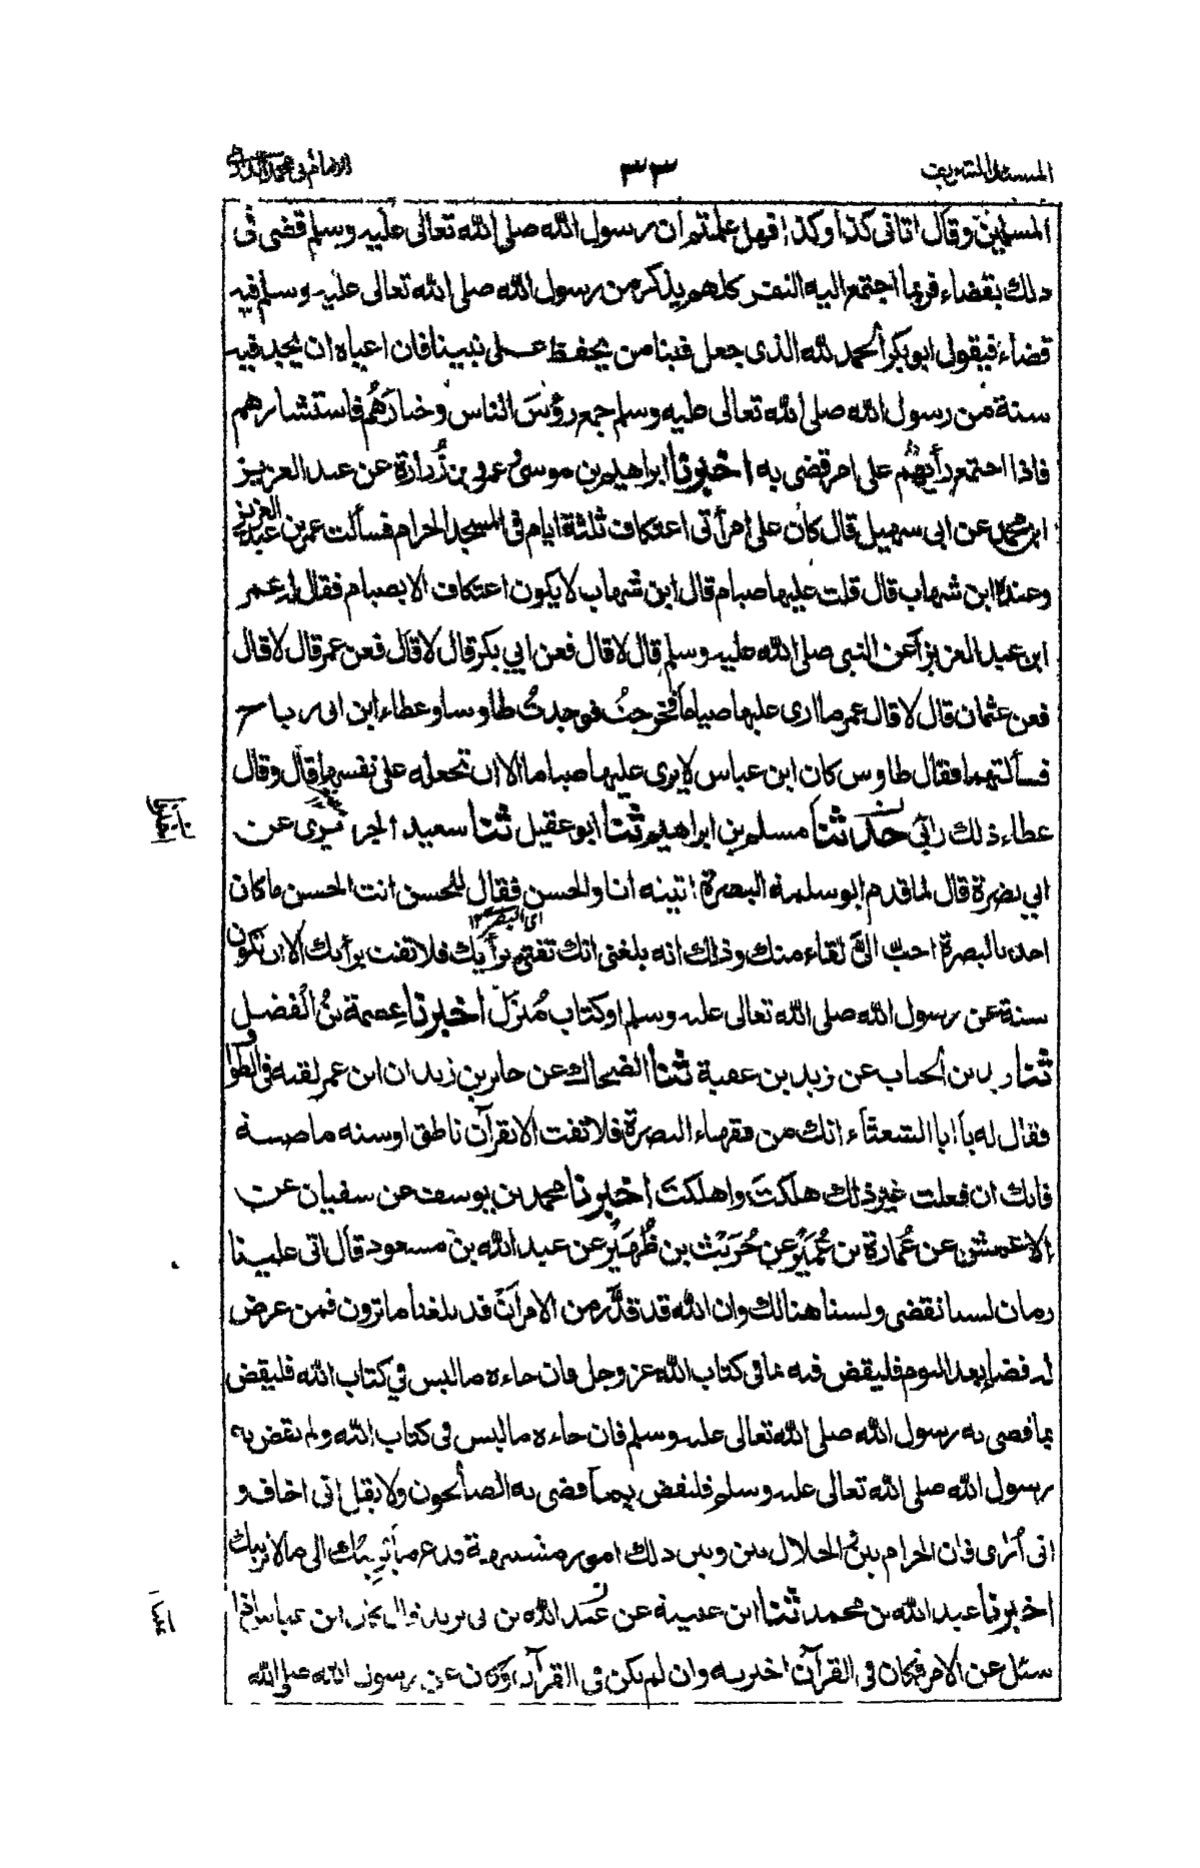 المسند الشريف ٣٣ الامام ابي محمد الدارمي
المسلمين وقال اتاني كذا وكذا فهل علمتم ان رسول الله صلى الله تعالى عليه وسلم قضى في
ذلك بقضاء فربما اجتمع اليه النفر كلهم يذكر من رسول الله صلى الله تعالى عليه وسلم فيه
قضاء فيقول ابو بكر الحمد لله الذى جعل فينا من يحفظ على نبينا فان اعياه ان يجد فيه
سنة من رسول الله صلى الله تعالى عليه وسلم جمع رؤس الناس وخيارَهُم فاستشارهم
فاذا اجتمع رأيهُم على امر قضى به اخبرنا ابراهيم بن موسى وعمرو بن زُرارة عن عبد العزيز
ابن محمد عن ابى سهيل قال كان على امرأتى اعتكاف ثلثة ايام فى المسجد الحرام فسألت عمر بن عبد العزيز
وعنده ابن شهاب قال قلت عليها صيام قال ابن شهاب لا يكون اعتكاف الا بصيام فقال له عمر
ابن عبد العزيز أعن النبى صلى الله عليه وسلم قال لا قال فعن ابي بكر قال لا قال فعن عمر قال لا قال
فعن عثمان قال لا قال عمر ما ارى عليها صياما فخرجتُ فوجدتُ طاوسا وعطاء ابن ابى رباح
فسألتهما فقال طاوس كان ابن عباس لا يرى عليها صياما الا ان تجعله على نفسها قال وقال
عطاء ذلك رائى حدثنا مسلم بن ابراهيم ثنا ابو عقيل ثنا سعيد الجريرى عن
ابي نضرة قال لما قدم ابو سلمة البصرة اتيته انا والحسن فقال للحسن انت الحسن ما كان
اى البصرى ١٢
احد بالبصرة احبّ الىّ لقاء منك وذلك انه بلغنى انك تفتى برأيك فلا تفت برأيك الا ان تكون
سنة عن رسول الله صلى الله تعالى عليه وسلم او كتاب مُنزَل اخبرنا عصمة بنُ الفضل
ثنا زيد بن الحباب عن زيد بن عقبة ثنا الضحاك عن جابر بن زيد ان ابن عمر لقيه فى الطواف
فقال له يا ابا الشعثاء انك من فقهاء البصرة فلا تفت الا بقرآن ناطق او سنة ماضية
فانك ان فعلت غير ذلك هلكتَ واهلكتَ اخبرنا محمد بن يوسف عن سفيان عن
الاعمش عن عُمارة بن عُمَيْر عن حُرَيْث بن ظُهَيْر عن عبد الله بن مسعود قال اتى علينا
زمان لسنا نقضى ولسنا هنالك وان الله قد قدَّر من الامر أنْ قد بلغنا ما ترون فمن عرض
له قضاء بعد اليوم فليقض فيه بما فى كتاب الله عز وجل فان جاءه ما ليس في كتاب الله فليقض
بما قضى به رسول الله صلى الله تعالى عليه وسلم فان جاءه ما ليس فى كتاب الله ولم يقض به
رسول الله صلى الله تعالى عليه وسلم فليقض بما قضى به الصالحون ولا يقل انى اخاف و
انى أُرٰى فان الحرام بيّن والحلال بين وبين ذلك امور مشتبهة فدع ما يَرِيبُك الى ما لا يريبك
اخبرنا عبد الله بن محمد ثنا ابن عيينة عن عبيد الله بن ابى يزيد قال كان ابن عباس اذا
سئل عن الامر فكان فى القرآن اخبر به وان لم يكن فى القرآن وكان عن رسول الله صلى الله